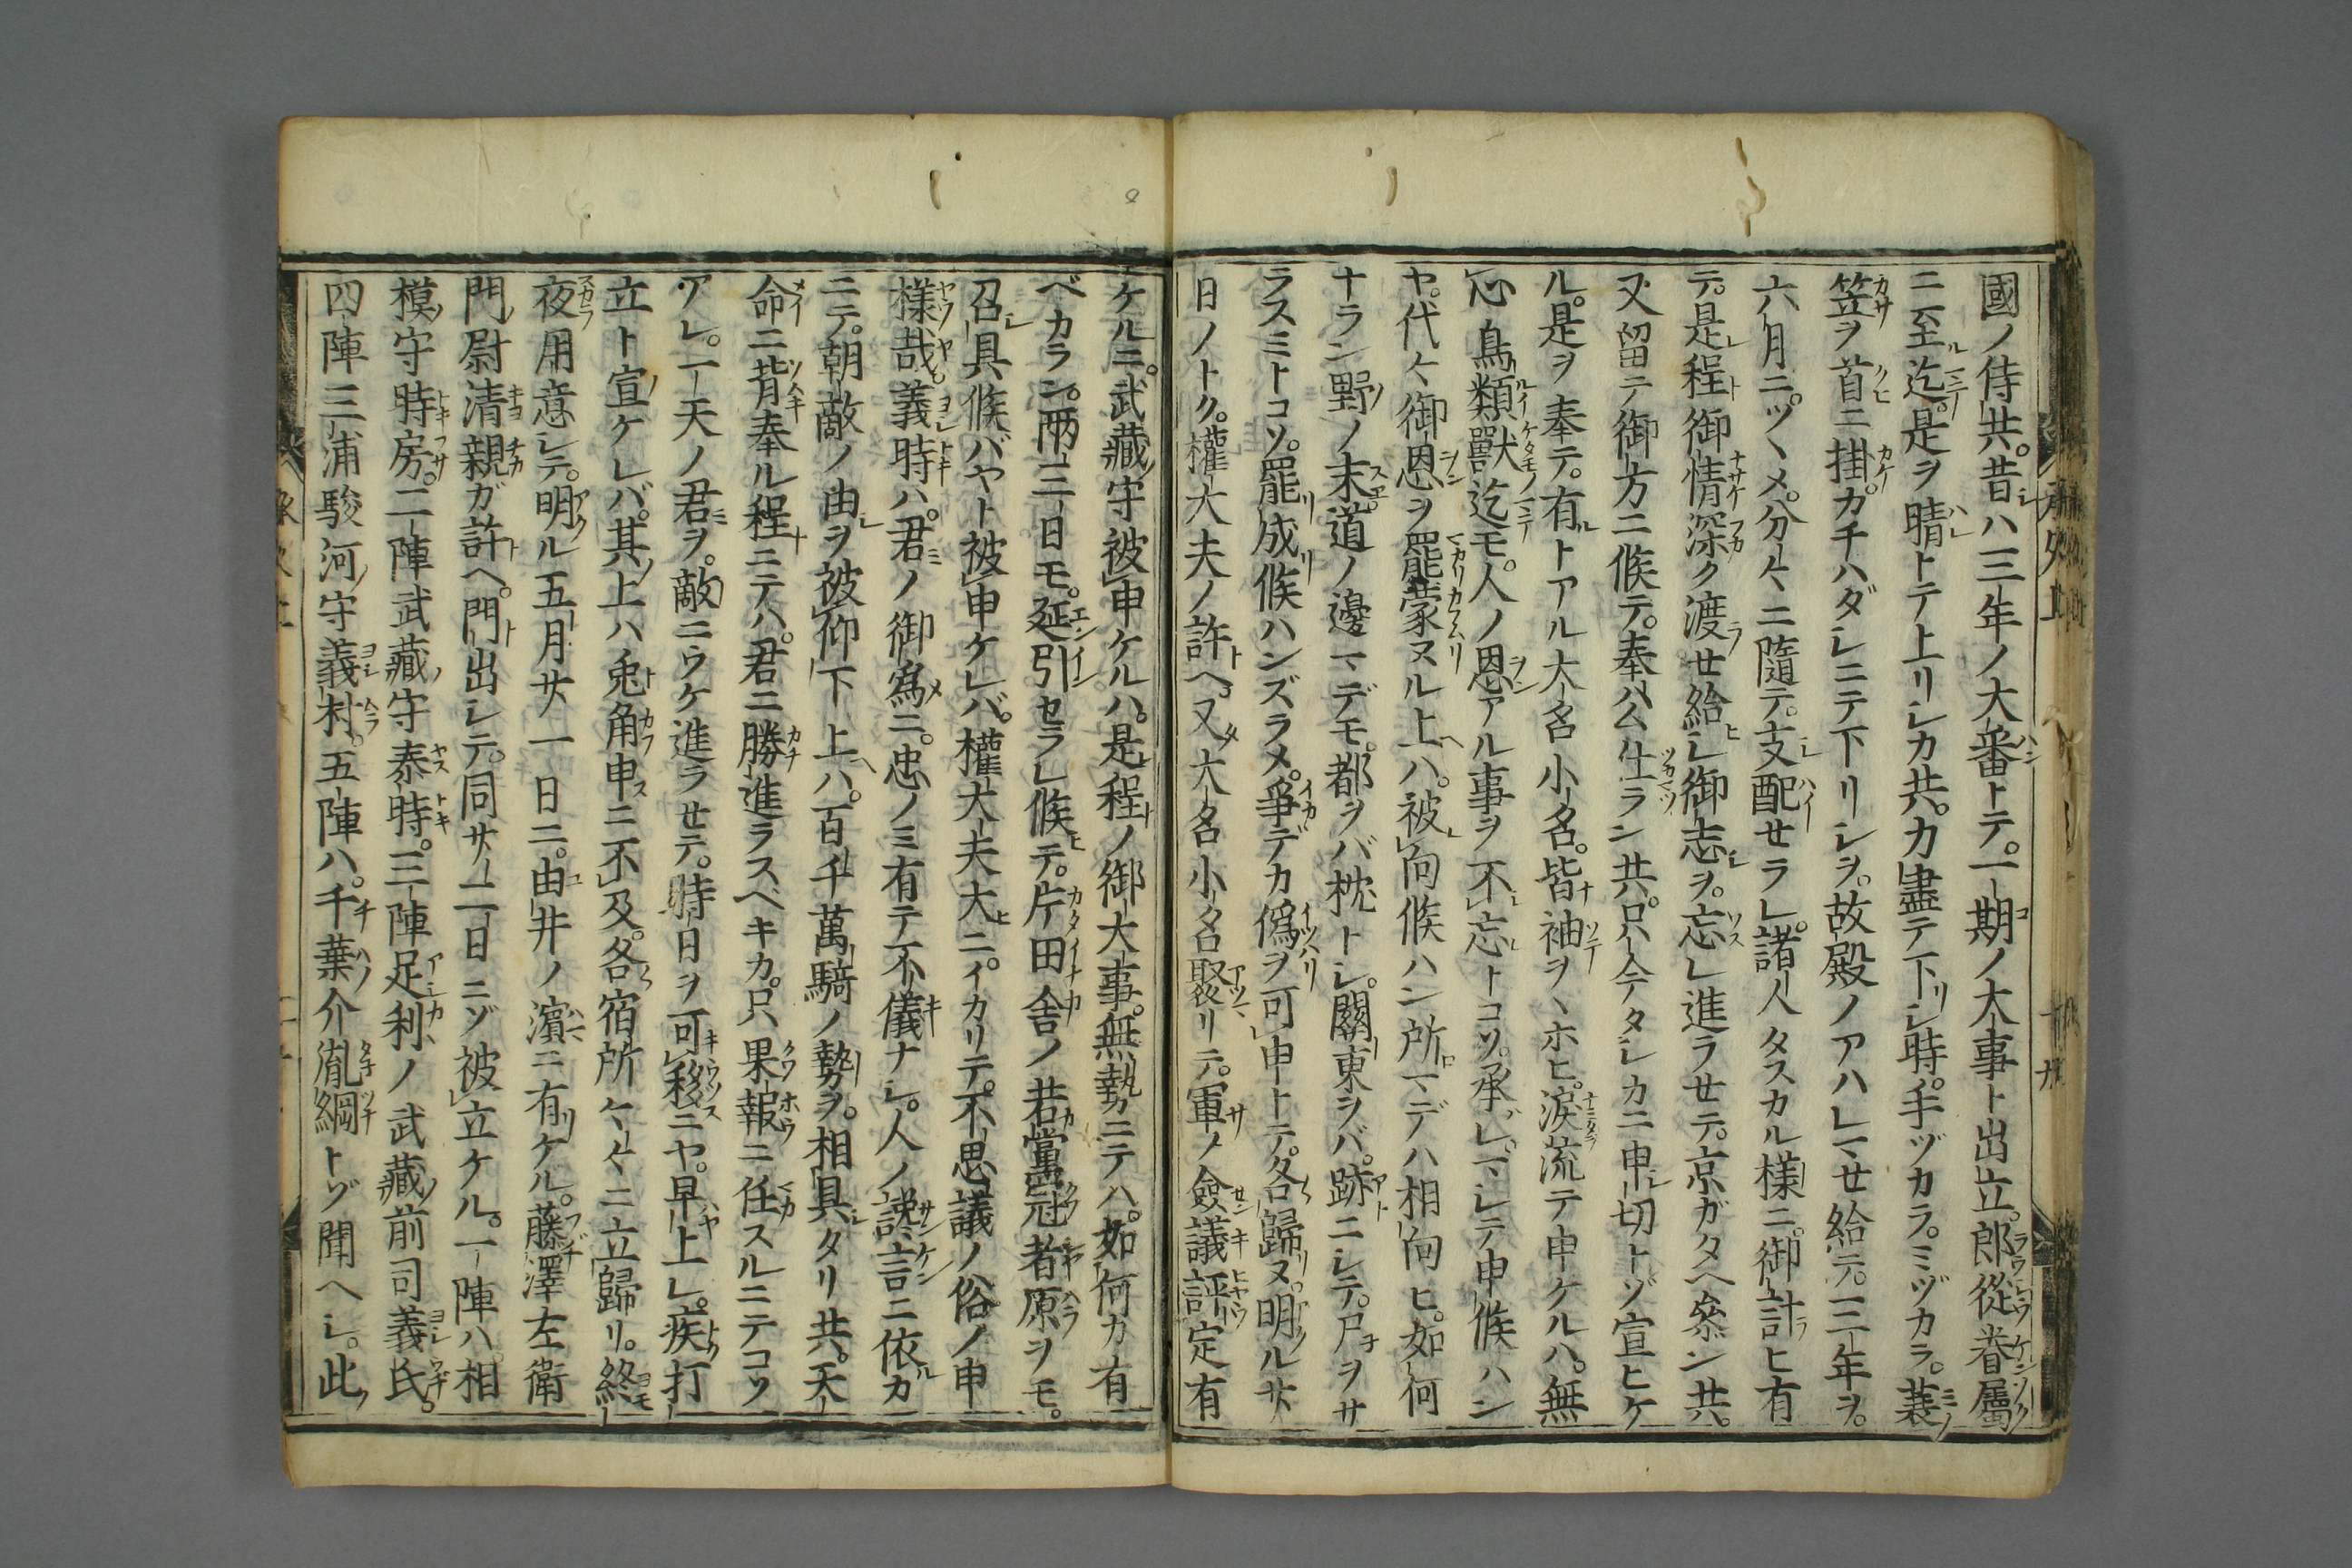 國ノ侍共。昔ハ三年ノ大番トテ。一期ノ大事ト出立。郎從眷屬
ニ至迄。是ヲ晴トテ上リシカ共。力盡テ下リシ時。手ヅカラ。ミヅカラ。蓑
笠ヲ首ニ掛。カチハダシニテ下リシヲ。故殿ノアハレマセ給テ。三年ヲ。
六月ニ。ツヽメ。分々ニ隨テ。支配セラレ。諸人タスカル様ニ。御計ヒ有
テ。是程御情深ク渡ラセ給ヒシ御志ヲ。忘レ進ラセテ。京ガタヘ參ン共。
又留テ御方ニ候テ。奉公仕ラン共。只今タシカニ申切トゾ宣ヒケ
ル。是ヲ奉テ。有トアル大名小名。皆袖ヲヽホヒ。淚流テ申ケルハ。無
心鳥類獸迄モ。人ノ恩アル事ヲ不忘トコソ。承レ。マシテ申候ハン
ヤ。代々御恩ヲ罷蒙ヌル上ハ。被向候ハン所マデハ相向ヒ。如何
ナラン野ノ末。道ノ邊マデモ。都ヲバ枕トシ。關東ヲバ。跡ニシテ。尸ヲサ
ラスミトコソ。罷成候ハンズラメ。爭デカ僞ヲ可申トテ。各歸リヌ。明ル廿
日ノトク。權大夫ノ許ヘ。又大名小名聚リテ。軍ノ僉議評定有
ケルニ。武藏守被申ケルハ。是程ノ御大事。無勢ニテハ。如何カ有
ベカラン。兩三日モ。延引セラレ候テ。片田舎ノ若黨冠者原ヲモ。
召具候バヤト被申ケレバ。權大夫大ニ。イカリテ。不思議ノ俗ノ申
樣哉。義時ハ。君ノ御爲ニ。忠ノミ有テ不儀ナシ。人ノ讒言ニ依カ
ニテ。朝敵ノ由ヲ被仰下上ハ。百千萬騎ノ勢ヲ。相具タリ共。天
命ニ背奉ル程ニテハ。君ニ勝進ラスベキカ。只果報ニ任スルニテコソ
アレ。一天ノ君ヲ。敵ニウケ進ラセテ。時日ヲ可移ニヤ。早上レ。疾打
立ト宣ケレバ。其上ハ兎角申ニ不及。各宿所々々ニ立歸リ。終
夜用意シテ。明ル五月廿一日ニ。由井ノ濱ニ有ケル。藤澤左衛
門尉清親ガ許ヘ。門出シテ。同廿二日ニゾ被立ケル。一陣ハ。相
模守時房。二陣武藏守泰時。三陣足利ノ武藏前司義氏。
四陣三浦駿河守義村。五陣ハ。千葉介胤綱トゾ聞ヘシ。此